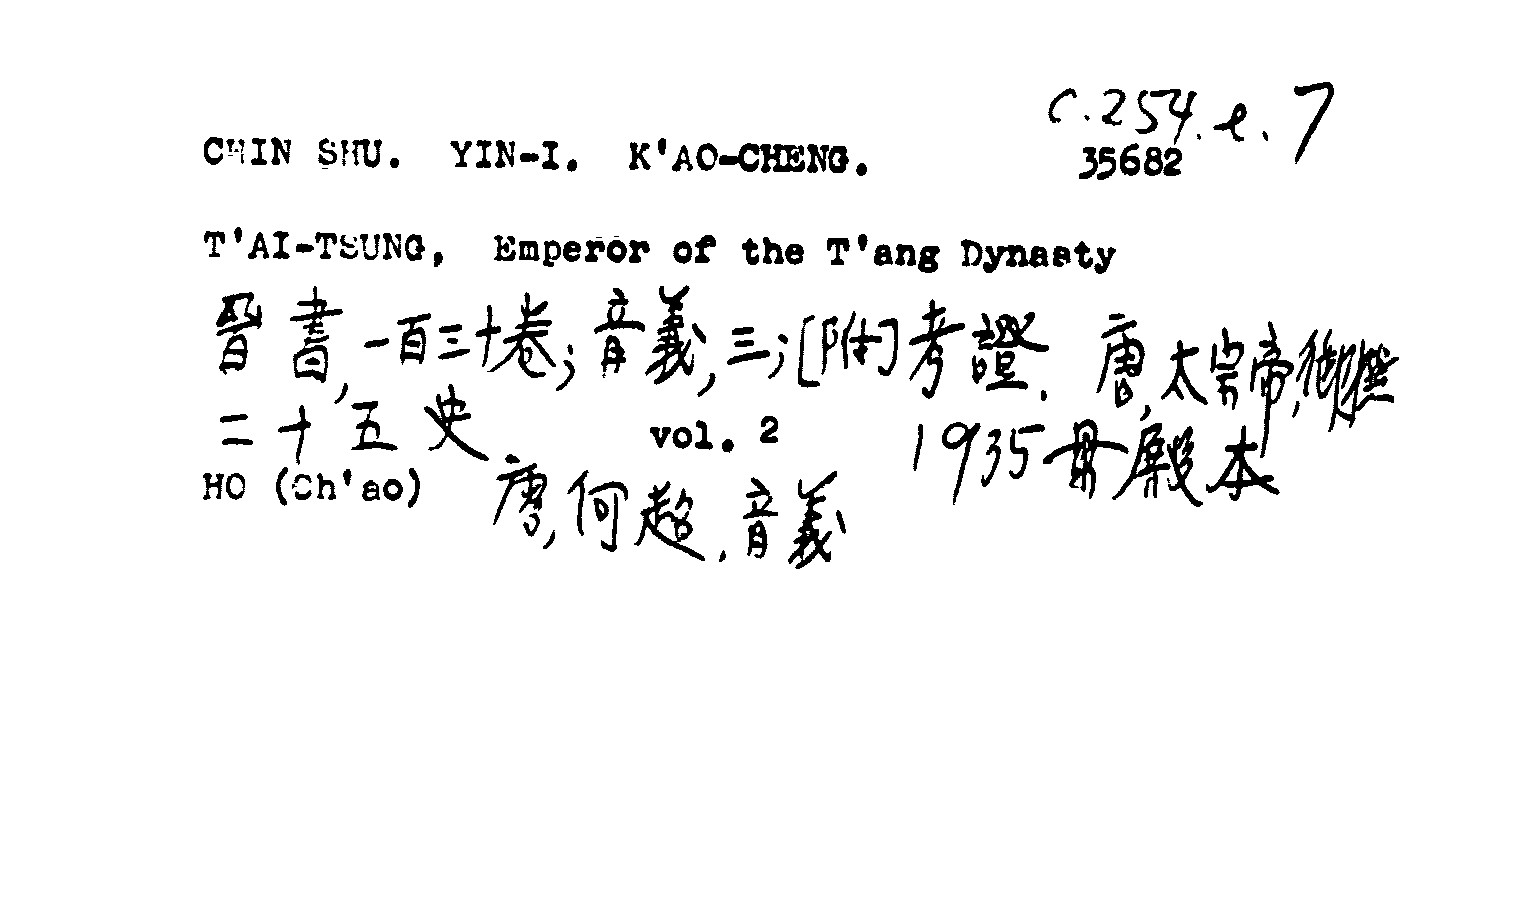 C.254.e.7
CHIN SHU. YIN-I. K'AO-CHENG.
35682
T'AI-TSUNG, Emperor of the T'ang Dynasty
晉書,一百三十卷;音義,三;[附]考證. 唐,太宗帝,御撰
二十五史 vol. 2 1935 毋殿本
HO (Ch'ao) 唐,何超.音義